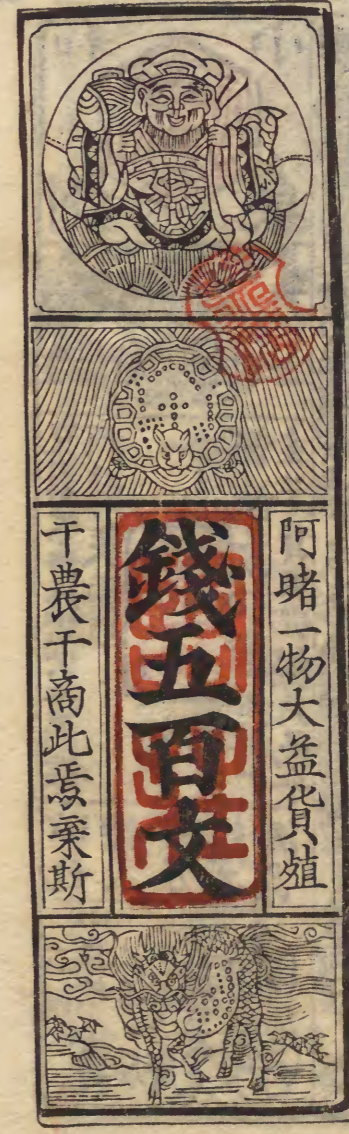 阿睹一物大益貨殖
錢五百文
干農干商此焉乗斯